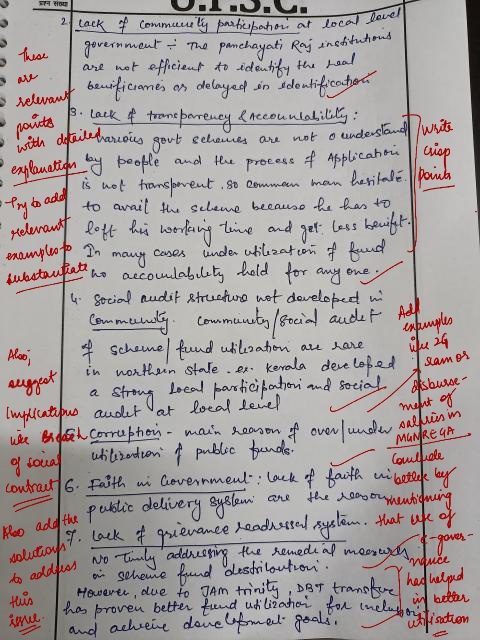 प्रश्न संख्या
U.P.S.C.
2. Lack of community participation at local level
government :- The panchayati Raj institutions
are not efficient to identify the real
beneficiaries or delayed in identification
3. Lack of transparency & Accountability :
various govt schemes are not understand
by people and the process of Application
is not transparent. so common man hesitate
to avail the scheme because he has to
left his working time and get less benifit.
In many cases under utilization of fund
no accountability held for any one.
4. Social audit structure not developed in
community. community/social audit
of scheme/fund utilization are rare
in northern state. ex. kerala developed
a strong local participation and social
audit at local level
5. Corruption - main reason of over/under
utilization of public funds.
6. Faith in Government : lack of faith in
public delivery system are the reason
7. Lack of grievance readressal system.
No timly addressing the remedial measures
in scheme fund distribution.
However, due to JAM trinity, DBT transfer
has proven better fund utilization for inclusion
and achieve development goals.
These
are
relevant
points
with detailed
explanation
Try to add
relevant
examples to
substantiate
Also,
suggest
implications
like Breach
of social
contract
Also add the
solutions
to address
this
issue.
Write
crisp
points
Add
examples
like 2G
scam or
disburse-
ment of
salaries in
MGNREGA
Conclude
better by
mentioning
that use of
e-gover-
nance
has helped
in better
utilisation